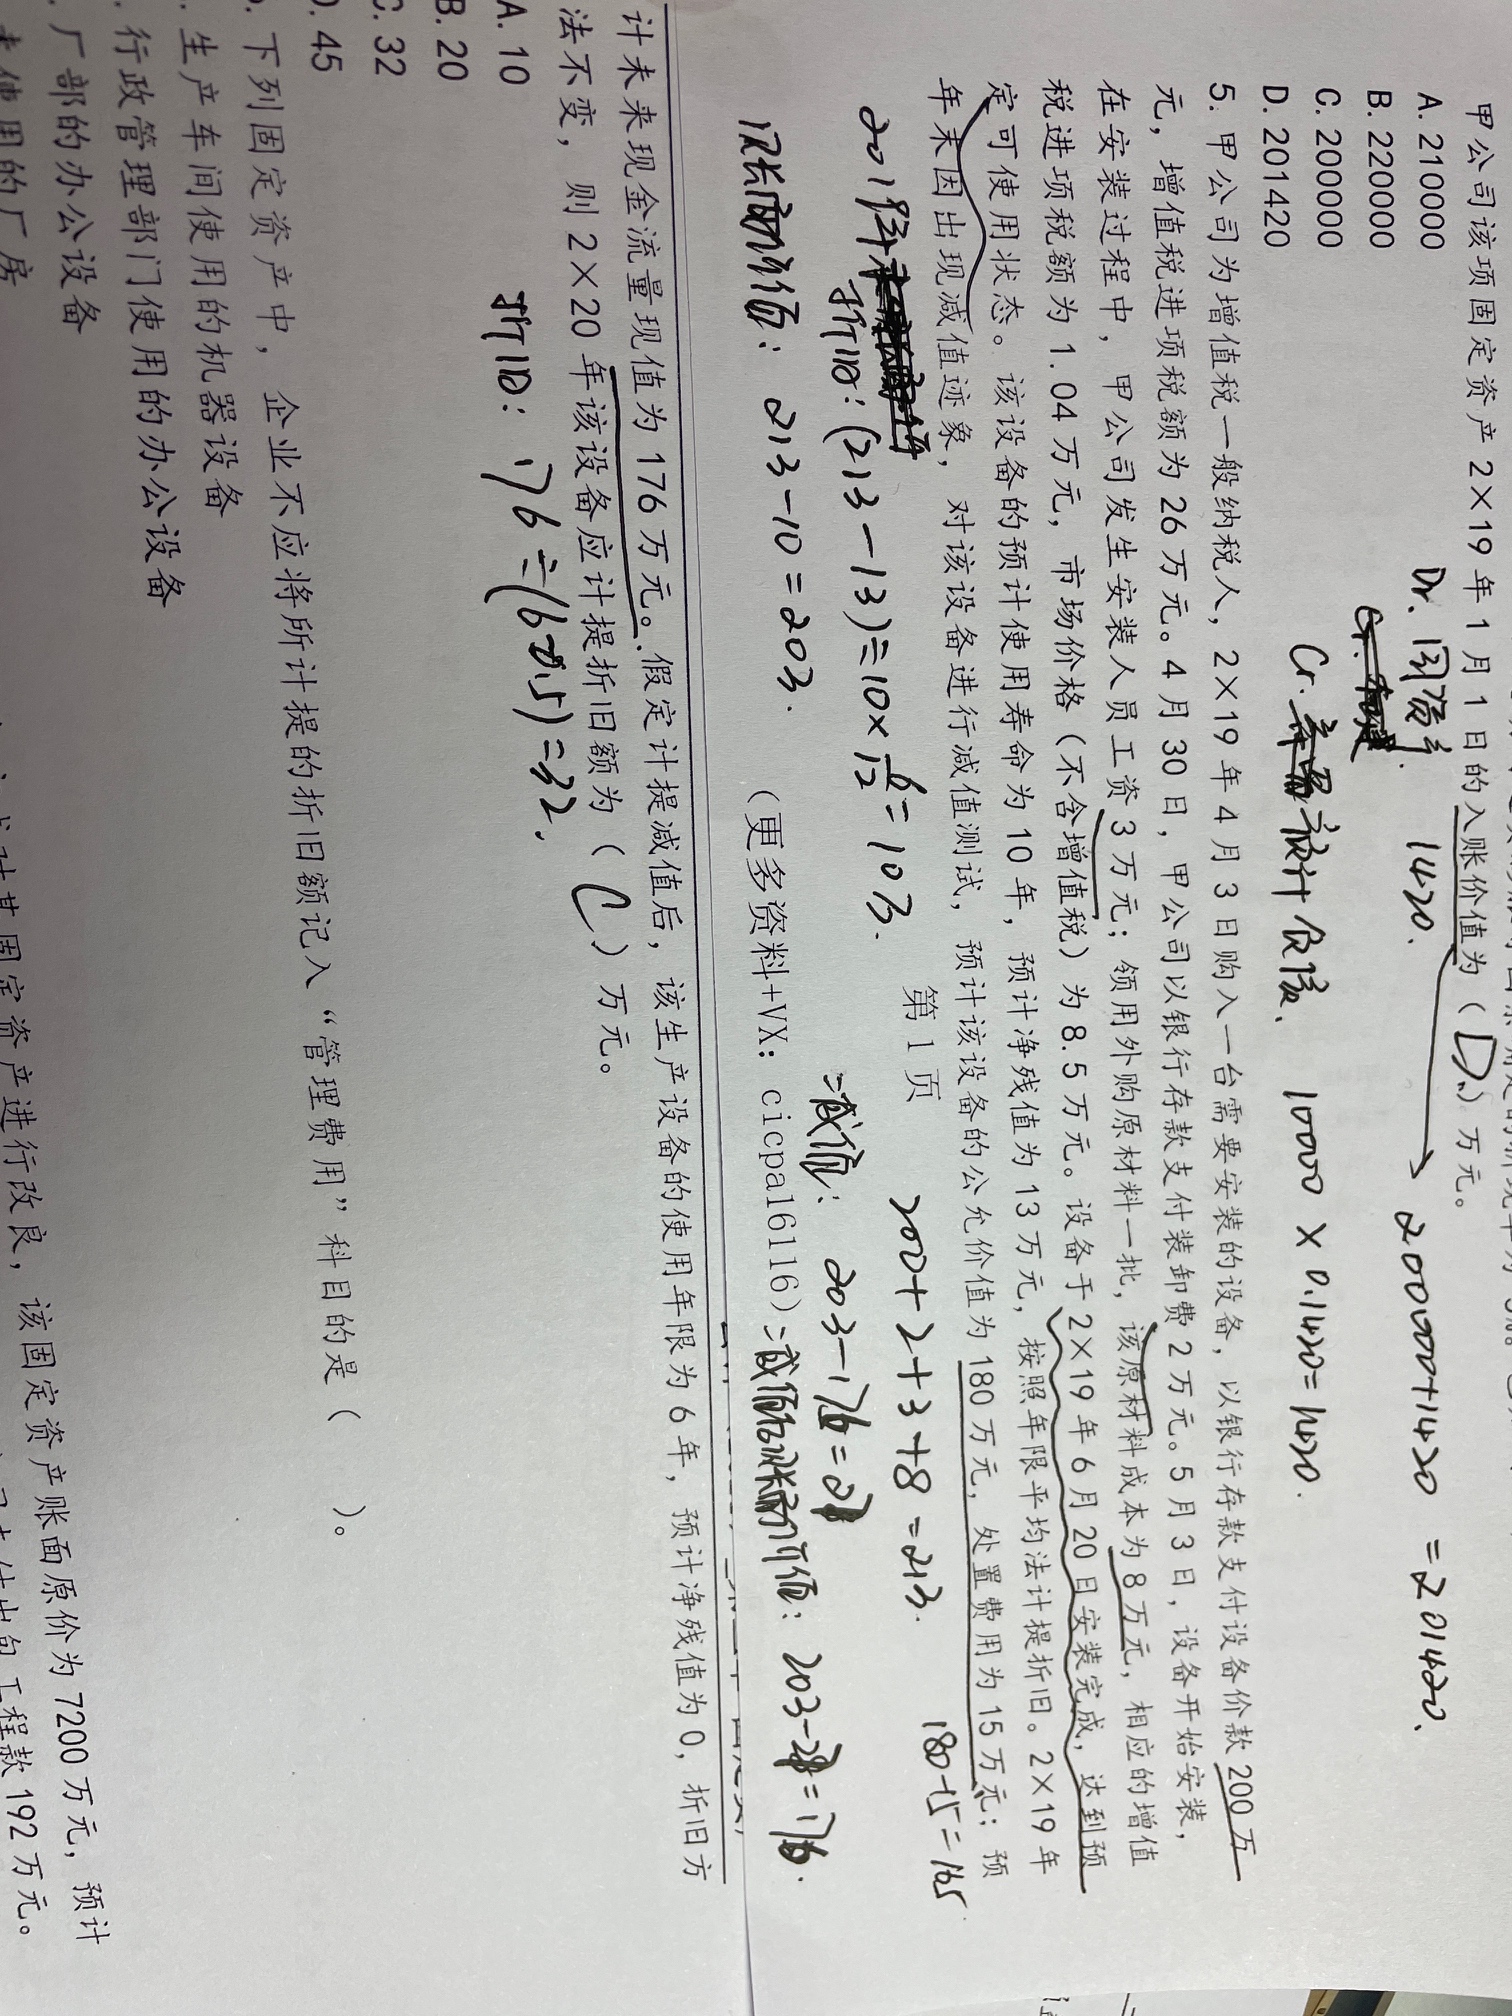 甲公司该项固定资产2×19年1月1日的入账价值为（D）万元。
A. 210000
B. 220000
C. 200000
D. 201420
Dr. 固资 1420.
200000+1420=201420.
Cr. 预计负债. 10000×0.1420=1420.
5. 甲公司为增值税一般纳税人，2×19年4月3日购入一台需要安装的设备，以银行存款支付设备价款200万
元，增值税进项税额为26万元。4月30日，甲公司以银行存款支付装卸费2万元。5月3日，设备开始安装，
在安装过程中，甲公司发生安装人员工资3万元；领用外购原材料一批，该原材料成本为8万元，相应的增值
税进项税额为1.04万元，市场价格（不含增值税）为8.5万元。设备于2×19年6月20日安装完成，达到预
定可使用状态。该设备的预计使用寿命为10年，预计净残值为13万元，按照年限平均法计提折旧。2×19年
年末因出现减值迹象，对该设备进行减值测试，预计该设备的公允价值为180万元，处置费用为15万元；预
200+2+3+8=213.
180-15=165
第1页
折旧：(213-13)÷10×6/12=10万.
减值：203-176=27
账面价值：213-10=203.
（更多资料+VX：cicpa16116）
203-27=176.
计未来现金流量现值为176万元。假定计提减值后，该生产设备的使用年限为6年，预计净残值为0，折旧方
法不变，则2×20年该设备应计提折旧额为（C）万元。
A. 10
B. 20
C. 32
D. 45
折旧：176÷(6-0.5)=32.
下列固定资产中，企业不应将所计提的折旧额记入“管理费用”科目的是（ ）。
生产车间使用的机器设备
行政管理部门使用的办公设备
厂部的办公设备
未使用的厂房
对其固定资产进行改良，该固定资产账面原价为7200万元，预计
工程款192万元。